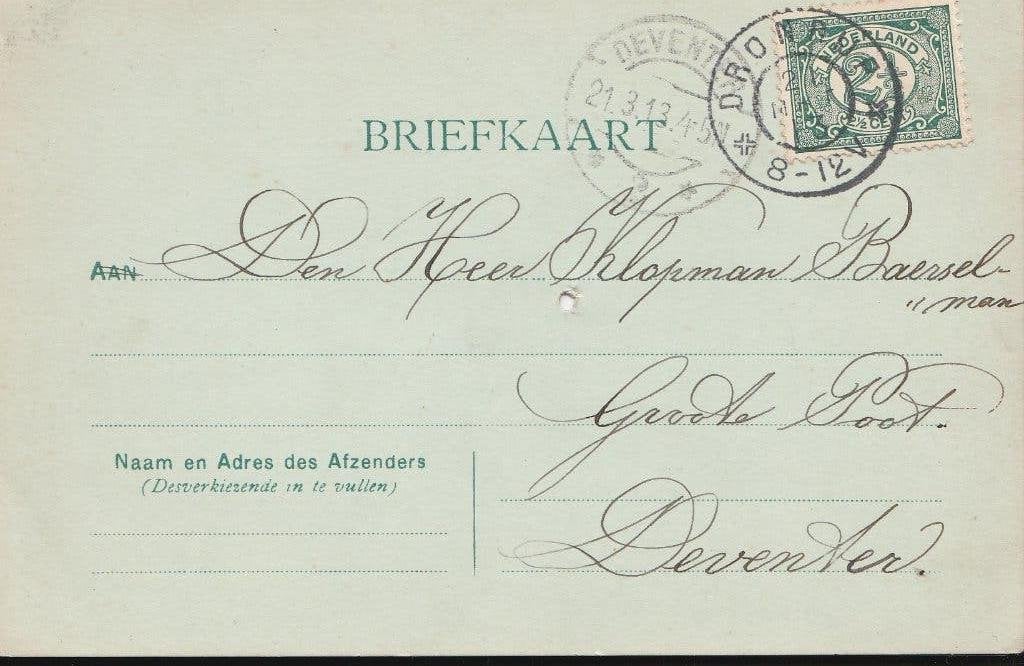 DEVENT
21.3.13.4-5N
3
DRON
8-12V
NEDERLAND
2½
½ CENT
BRIEFKAART
AAN Den Heer Klopman Baersel-
" man
Groote Poot.
Naam en Adres des Afzenders
(Desverkiezende in te vullen)
Deventer.